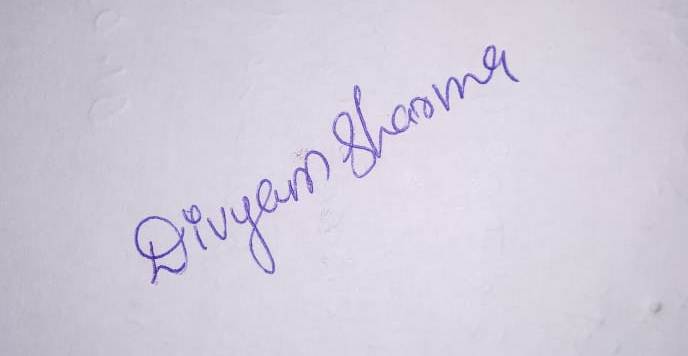 Divyam Sharma